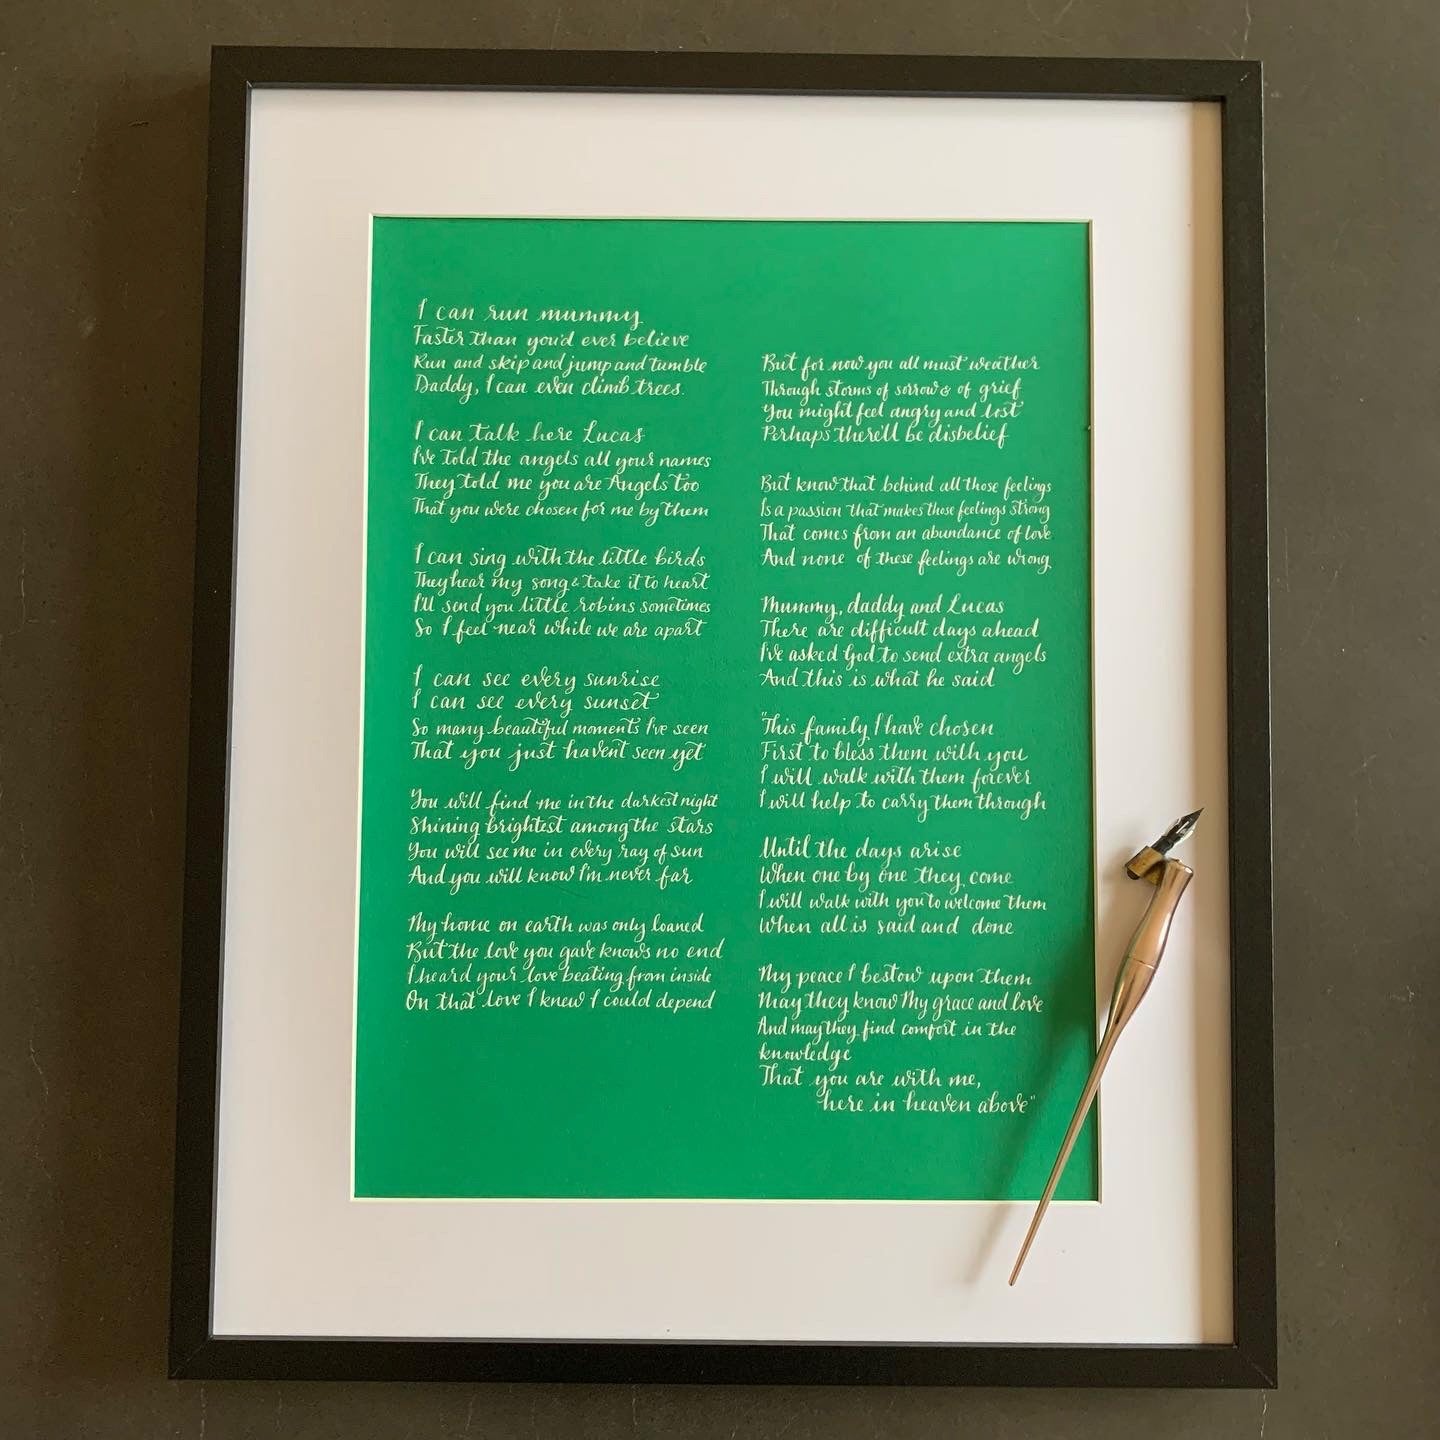 I can run mummy
Faster than you'd ever believe
Run and skip and jump and tumble
Daddy, I can even climb trees.
I can talk here Lucas
I've told the angels all your names
They told me you are Angels too
That you were chosen for me by them
I can sing with the little birds
They hear my song & take it to heart
I'll send you little robins sometimes
So I feel near while we are apart
I can see every sunrise
I can see every sunset
So many beautiful moments I've seen
That you just haven't seen yet
You will find me in the darkest night
Shining brightest among the stars
You will see me in every ray of sun
And you will know I'm never far
My home on earth was only loaned
But the love you gave knows no end
I heard your love beating from inside
On that love I knew I could depend
But for now you all must weather
Through storms of sorrow & of grief
You might feel angry and lost
Perhaps there'll be disbelief
But know that behind all those feelings
Is a passion that makes those feelings strong
That comes from an abundance of love
And none of these feelings are wrong.
Mummy, daddy and Lucas
There are difficult days ahead
I've asked God to send extra angels
And this is what he said
"This family I have chosen
First to bless them with you
I will walk with them forever
I will help to carry them through
Until the days arise
When one by one they come
I will walk with you to welcome them
When all is said and done
My peace I bestow upon them
May they know My grace and love
And may they find comfort in the
knowledge
That you are with me,
here in heaven above"